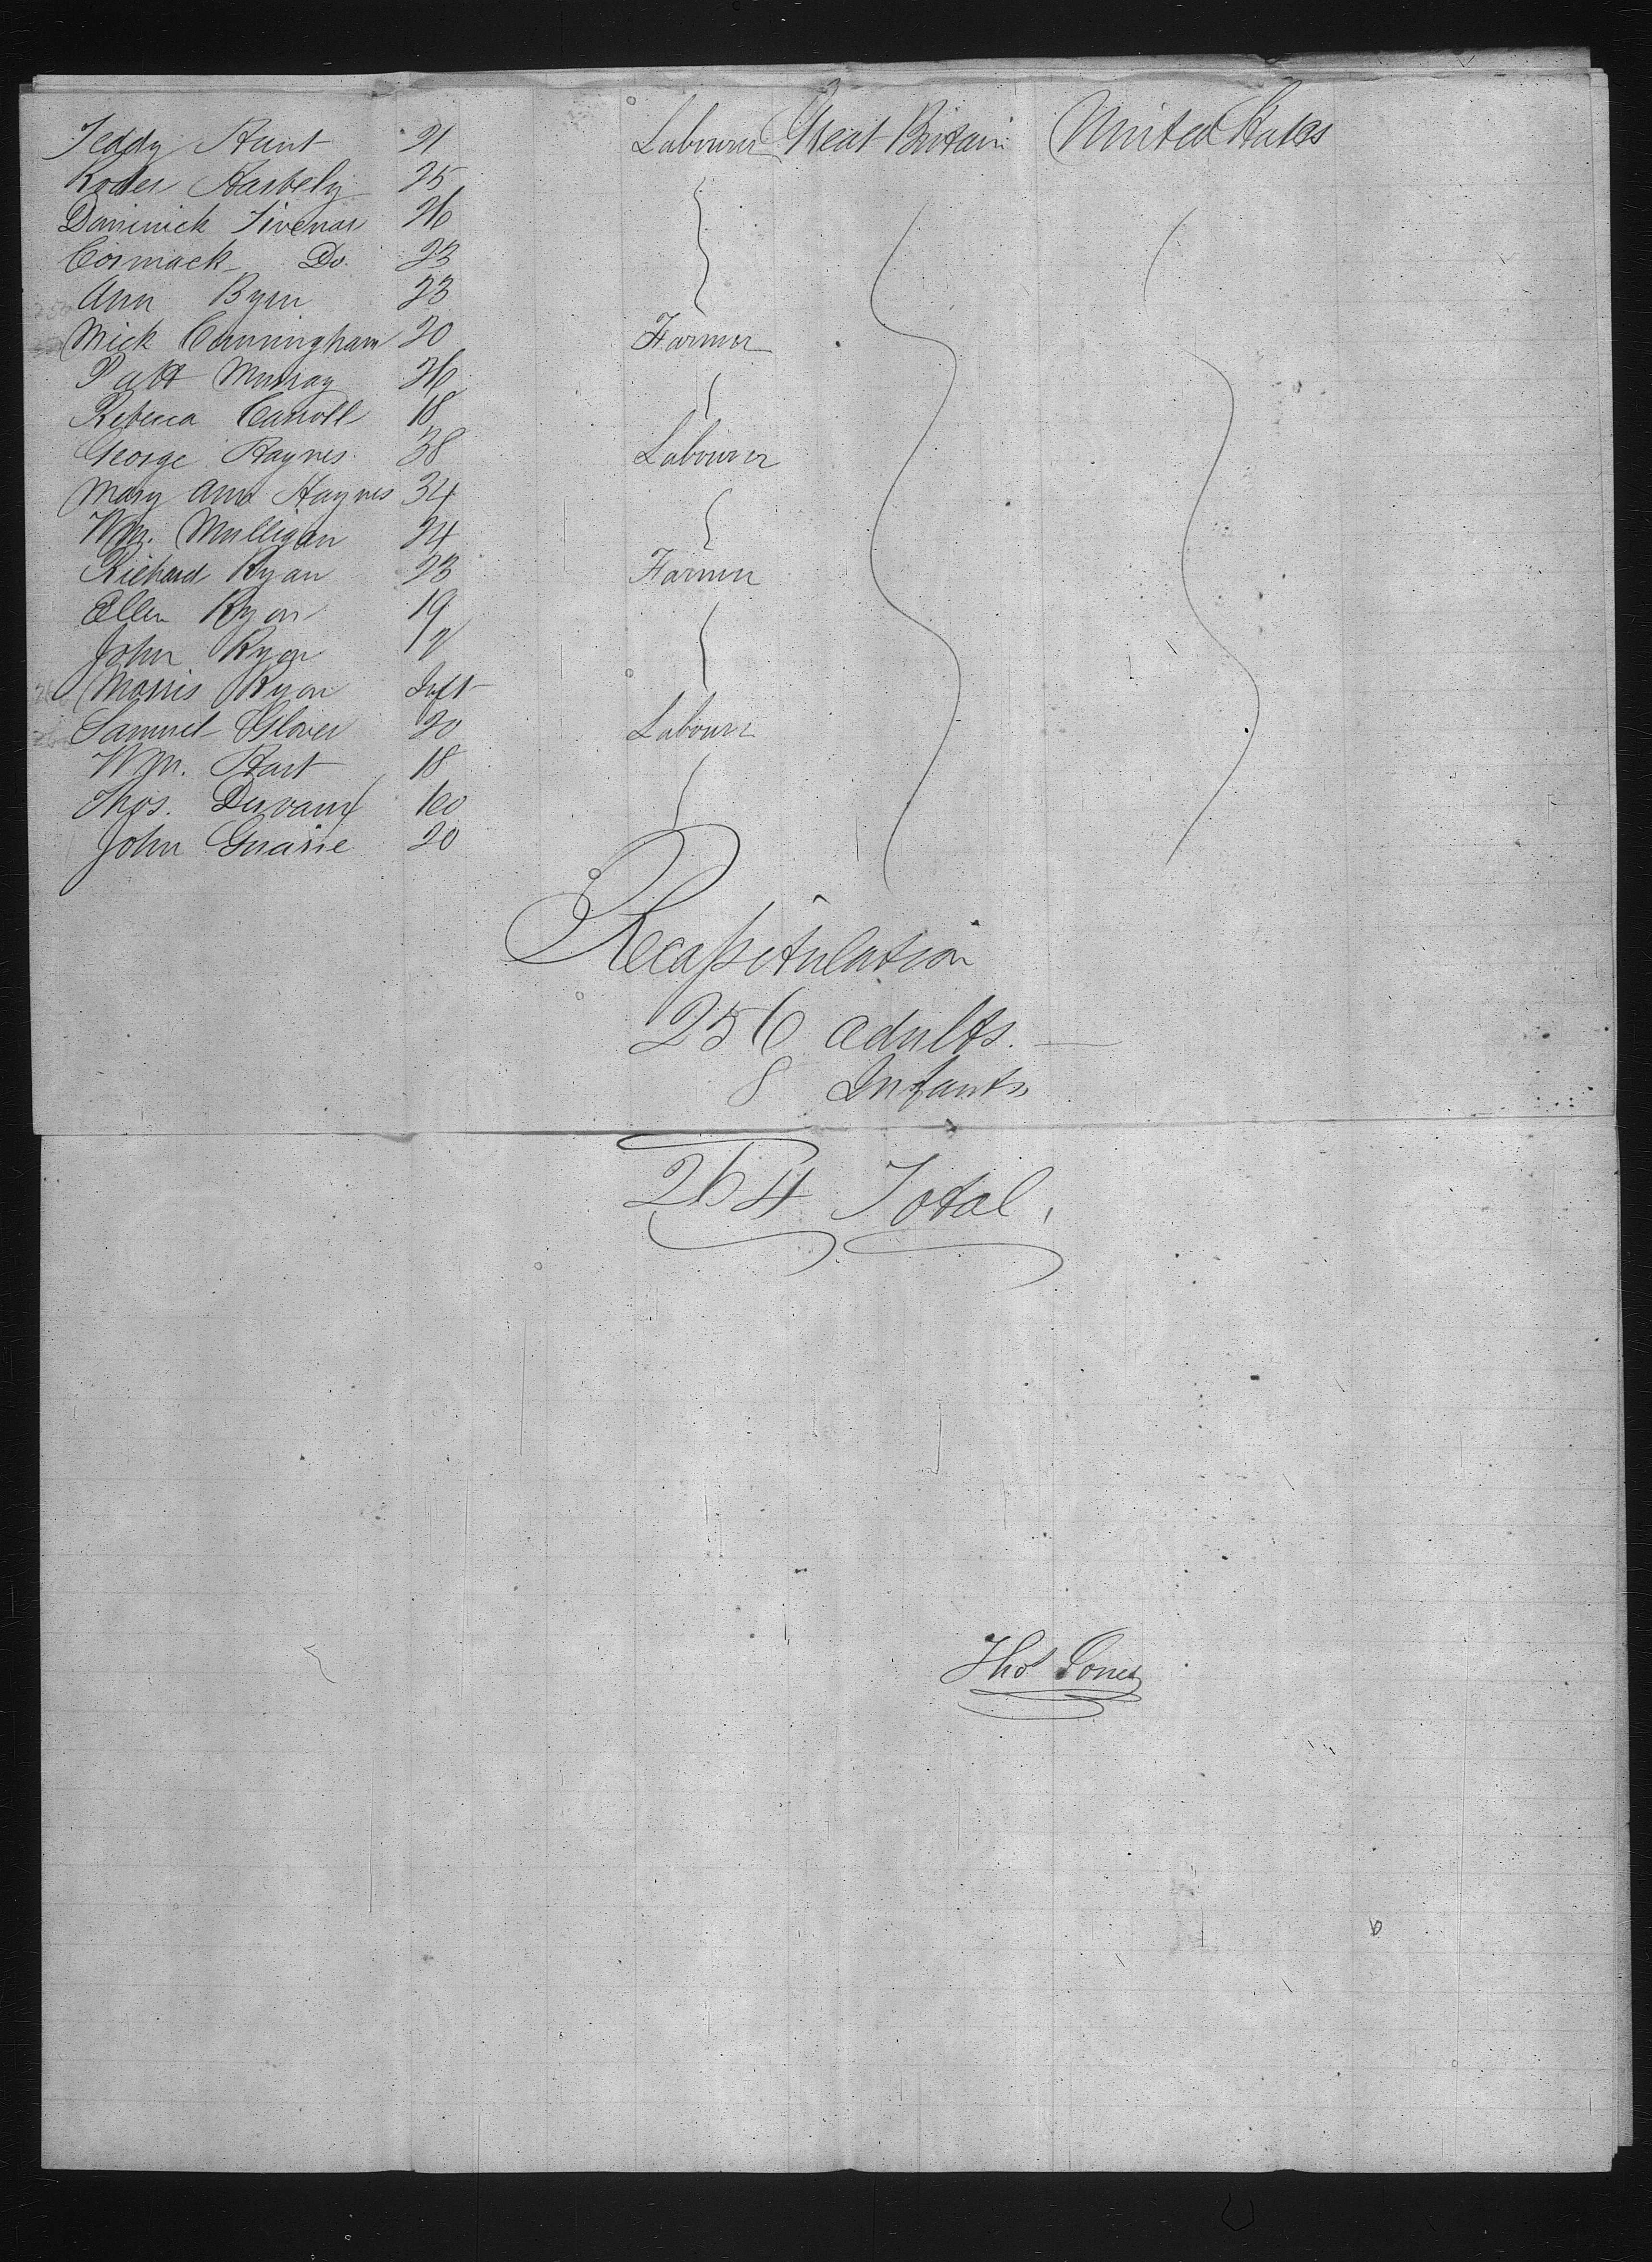 Teddy Hunt 21 Labourer Great Britain United States
25
Dominick 26
Cormack Do. 23
Ann Byrn 23
Mick Cunningham 20 Farmer
Patt Murray 26
Rebecca Carroll 18
George Haynes 38 Labourer
Mary Ann Haynes 34
Wm. Mulligan 24
Richard Ryan 23 Farmer
Ellen Ryan 19
John Ryan
Morris Ryan Inft
Samuel Glover 20 Labourer
Wm. Hart 18
Thos.
John 20
Recapitulation
256 adults.
8 Infants
264 Total.
Thos Jones